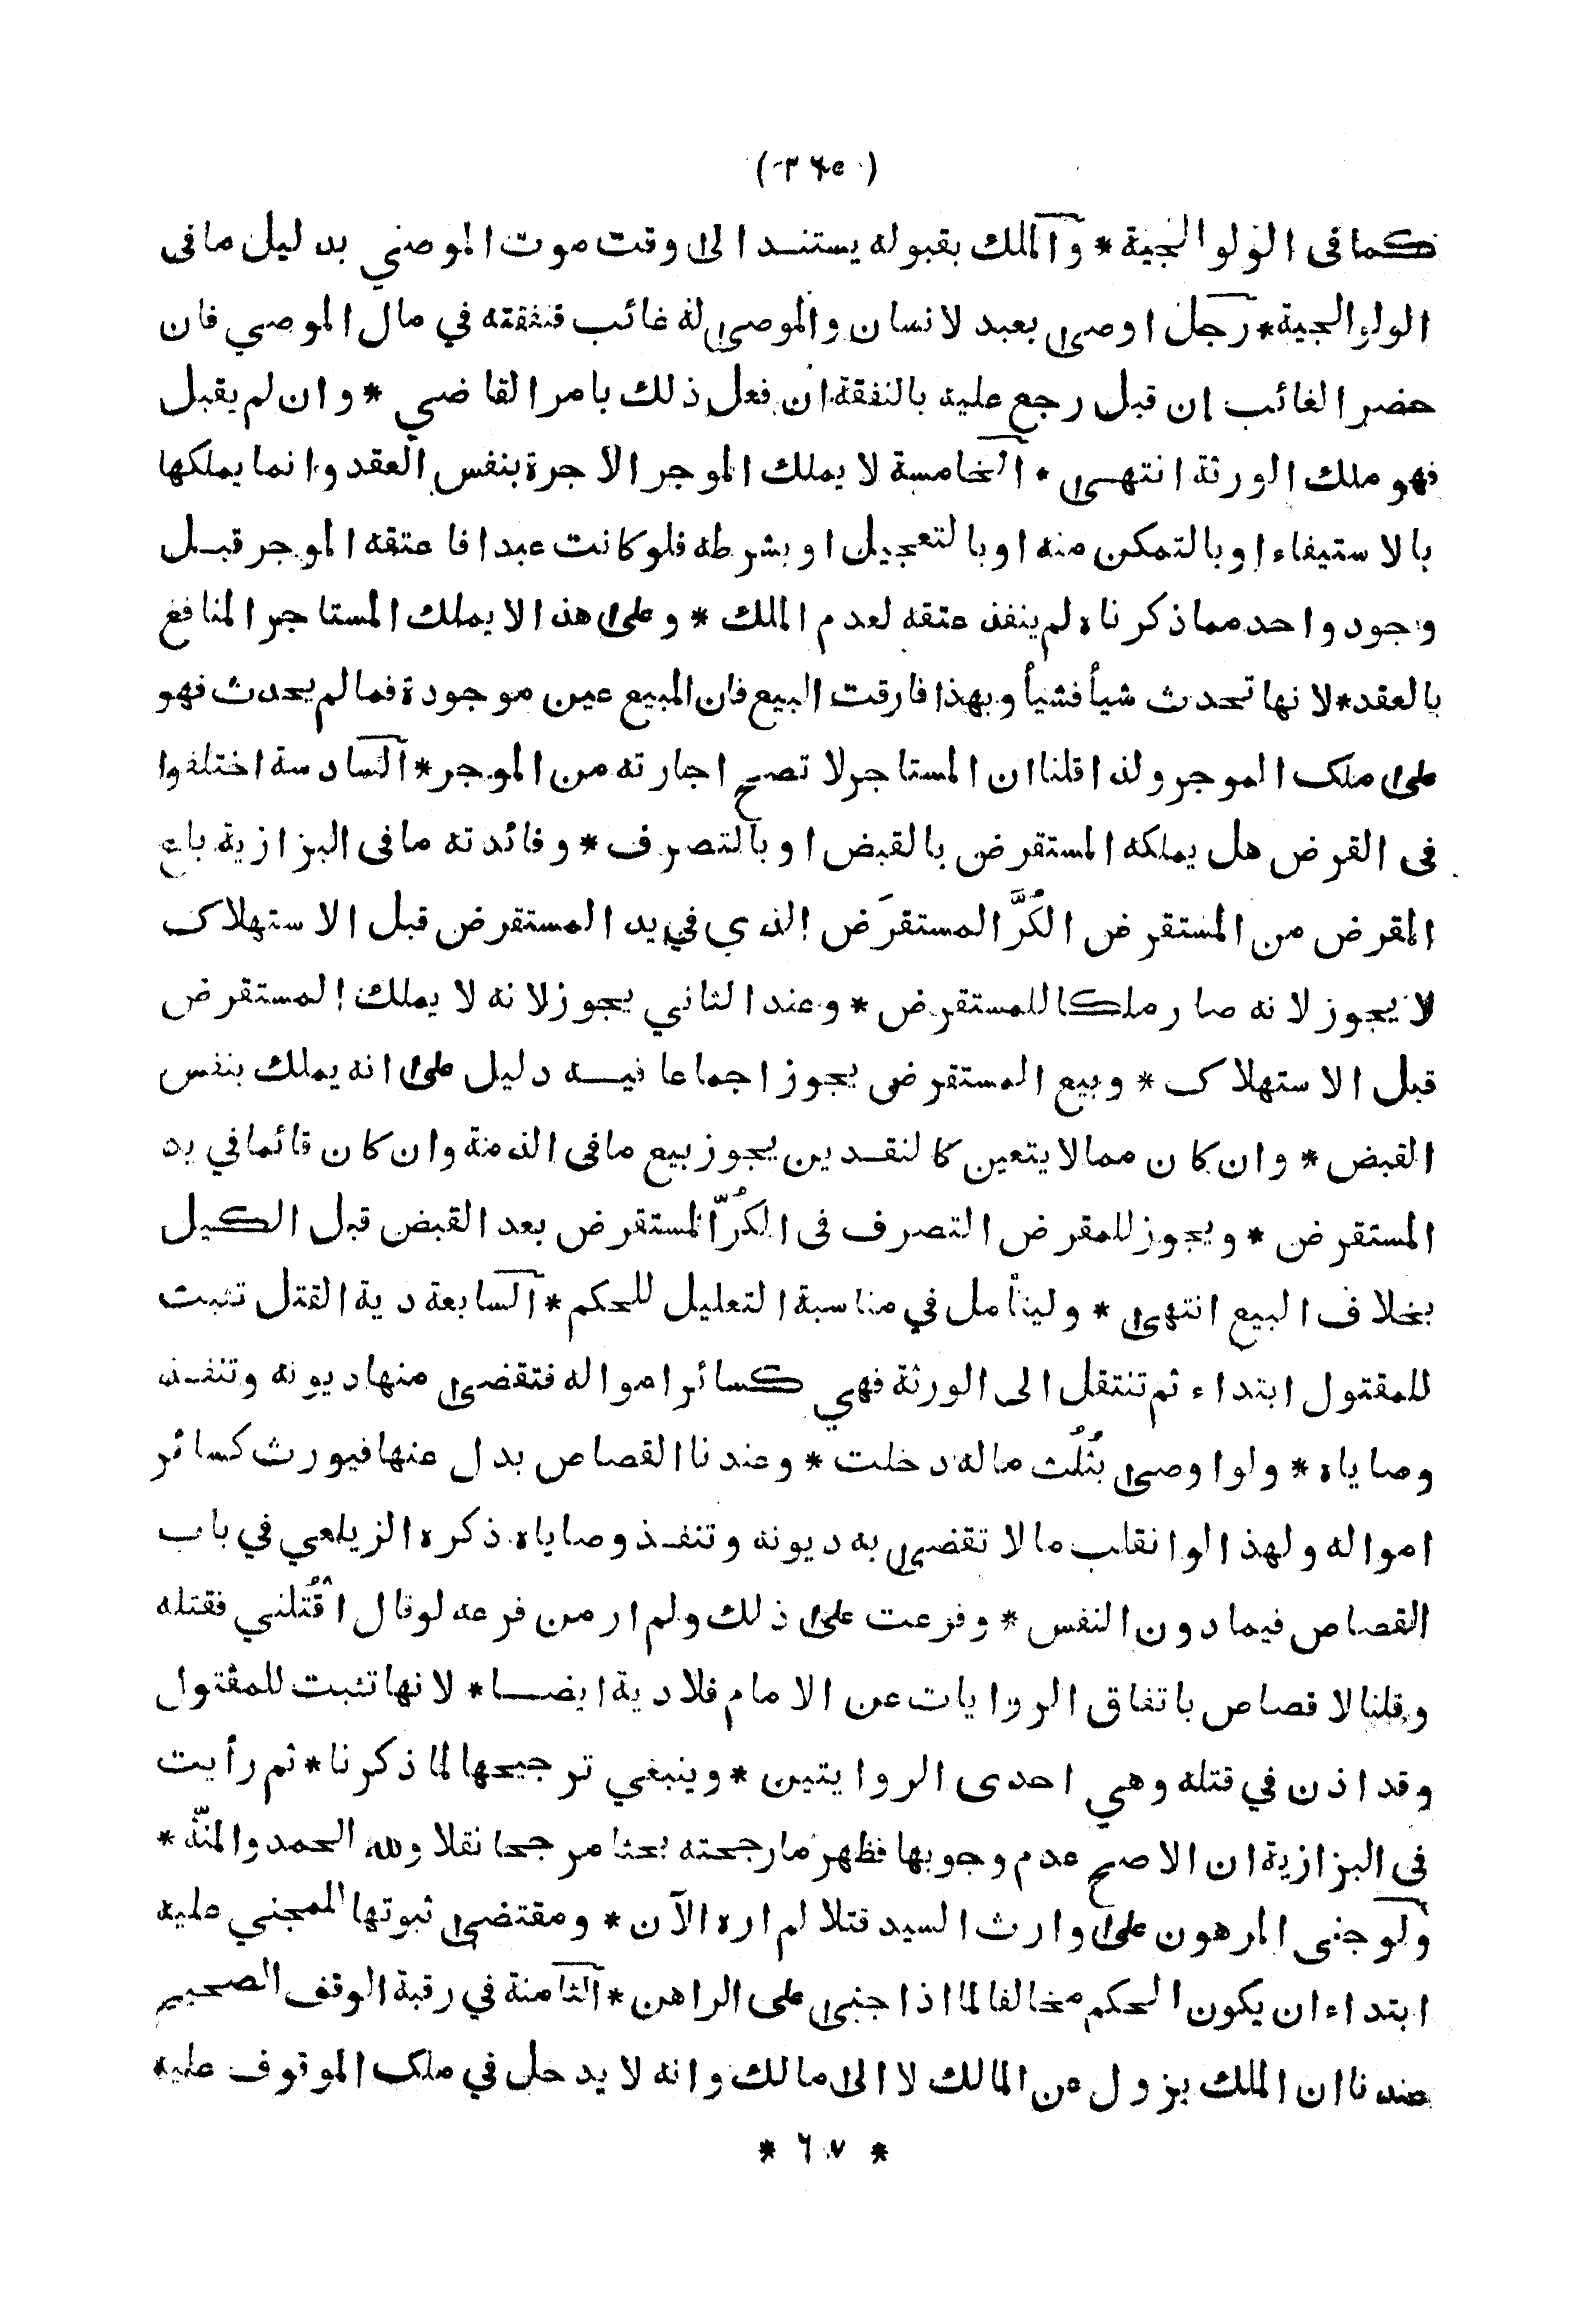 (٣٦٥)
كما فى الولوالجية * والملك بقبوله يستند الى وقت موت الموصي بدليل ما فى
الولوالجية * رجل اوصى بعبد لانسان والموصى له غائب فنفقته في مال الموصي فان
حضر الغائب ان قبل رجع عليه بالنفقة ان فعل ذلك بامر القاضي * وان لم يقبل
فهو ملك الورثة انتهى * الخامسة لا يملك الموجر الاجرة بنفس العقد وانما يملكها
بالاستيفاء او بالتمكن منه او بالتعجيل او بشرطه فلو كانت عبدا فاعتقه الموجر قبل
وجود واحد مما ذكرناه لم ينفذ عتقه لعدم الملك * وعلى هذا لا يملك المستاجر المنافع
بالعقد * لانها تحدث شيأ فشيأ وبهذا فارقت البيع فان المبيع عين موجودة فما لم يحدث فهو
على ملك الموجر ولذا قلنا ان المستاجر لا تصح اجارته من الموجر * السادسة اختلفوا
فى القرض هل يملكه المستقرض بالقبض او بالتصرف * وفائدته ما فى البزازية باع
المقرض من المستقرض الكُرَّ المستقرَض الذي في يد المستقرض قبل الاستهلاك
لا يجوز لانه صار ملكا للمستقرض * وعند الثاني يجوز لانه لا يملك المستقرض
قبل الاستهلاك * وبيع المستقرض يجوز اجماعا فيه دليل على انه يملك بنفس
القبض * وان كان مما لا يتعين كالنقدين يجوز بيع ما فى الذمة وان كان قائما في يد
المستقرض * ويجوز للمقرض التصرف فى الكُرّ المستقرض بعد القبض قبل الكيل
بخلاف البيع انتهى * وليتأمل في مناسبة التعليل للحكم * السابعة دية القتل تثبت
للمقتول ابتداء ثم تنتقل الى الورثة فهي كسائر امواله فتقضى منها ديونه وتنفذ
وصاياه * ولو اوصى بثُلُث ماله دخلت * وعندنا القصاص بدل عنها فيورث كسائر
امواله ولهذا لو انقلب مالا تقضى به ديونه وتنفذ وصاياه ذكره الزيلعي في باب
القصاص فيما دون النفس * وفرعت على ذلك ولم ار من فرعه لو قال اقْتُلني فقتله
وقلنا لا قصاص باتفاق الروايات عن الامام فلا دية ايضا * لانها تثبت للمقتول
وقد اذن في قتله وهي احدى الروايتين * وينبغي ترجيحها لما ذكرنا * ثم رأيت
فى البزازية ان الاصح عدم وجوبها فظهر ما رجحته بحثا مرجحا نقلا ولله الحمد والمنّه *
ولو جنى المرهون على وارث السيد قتلا لم اره الآن * ومقتضى ثبوتها للمجني عليه
ابتداء ان يكون الحكم مخالفا لما اذا جنى على الراهن * الثامنة في رقبة الوقف الصحيح
عندنا ان الملك يزول عن المالك لا الى مالك وانه لا يدخل في ملك الموقوف عليه
* ٦٧ *